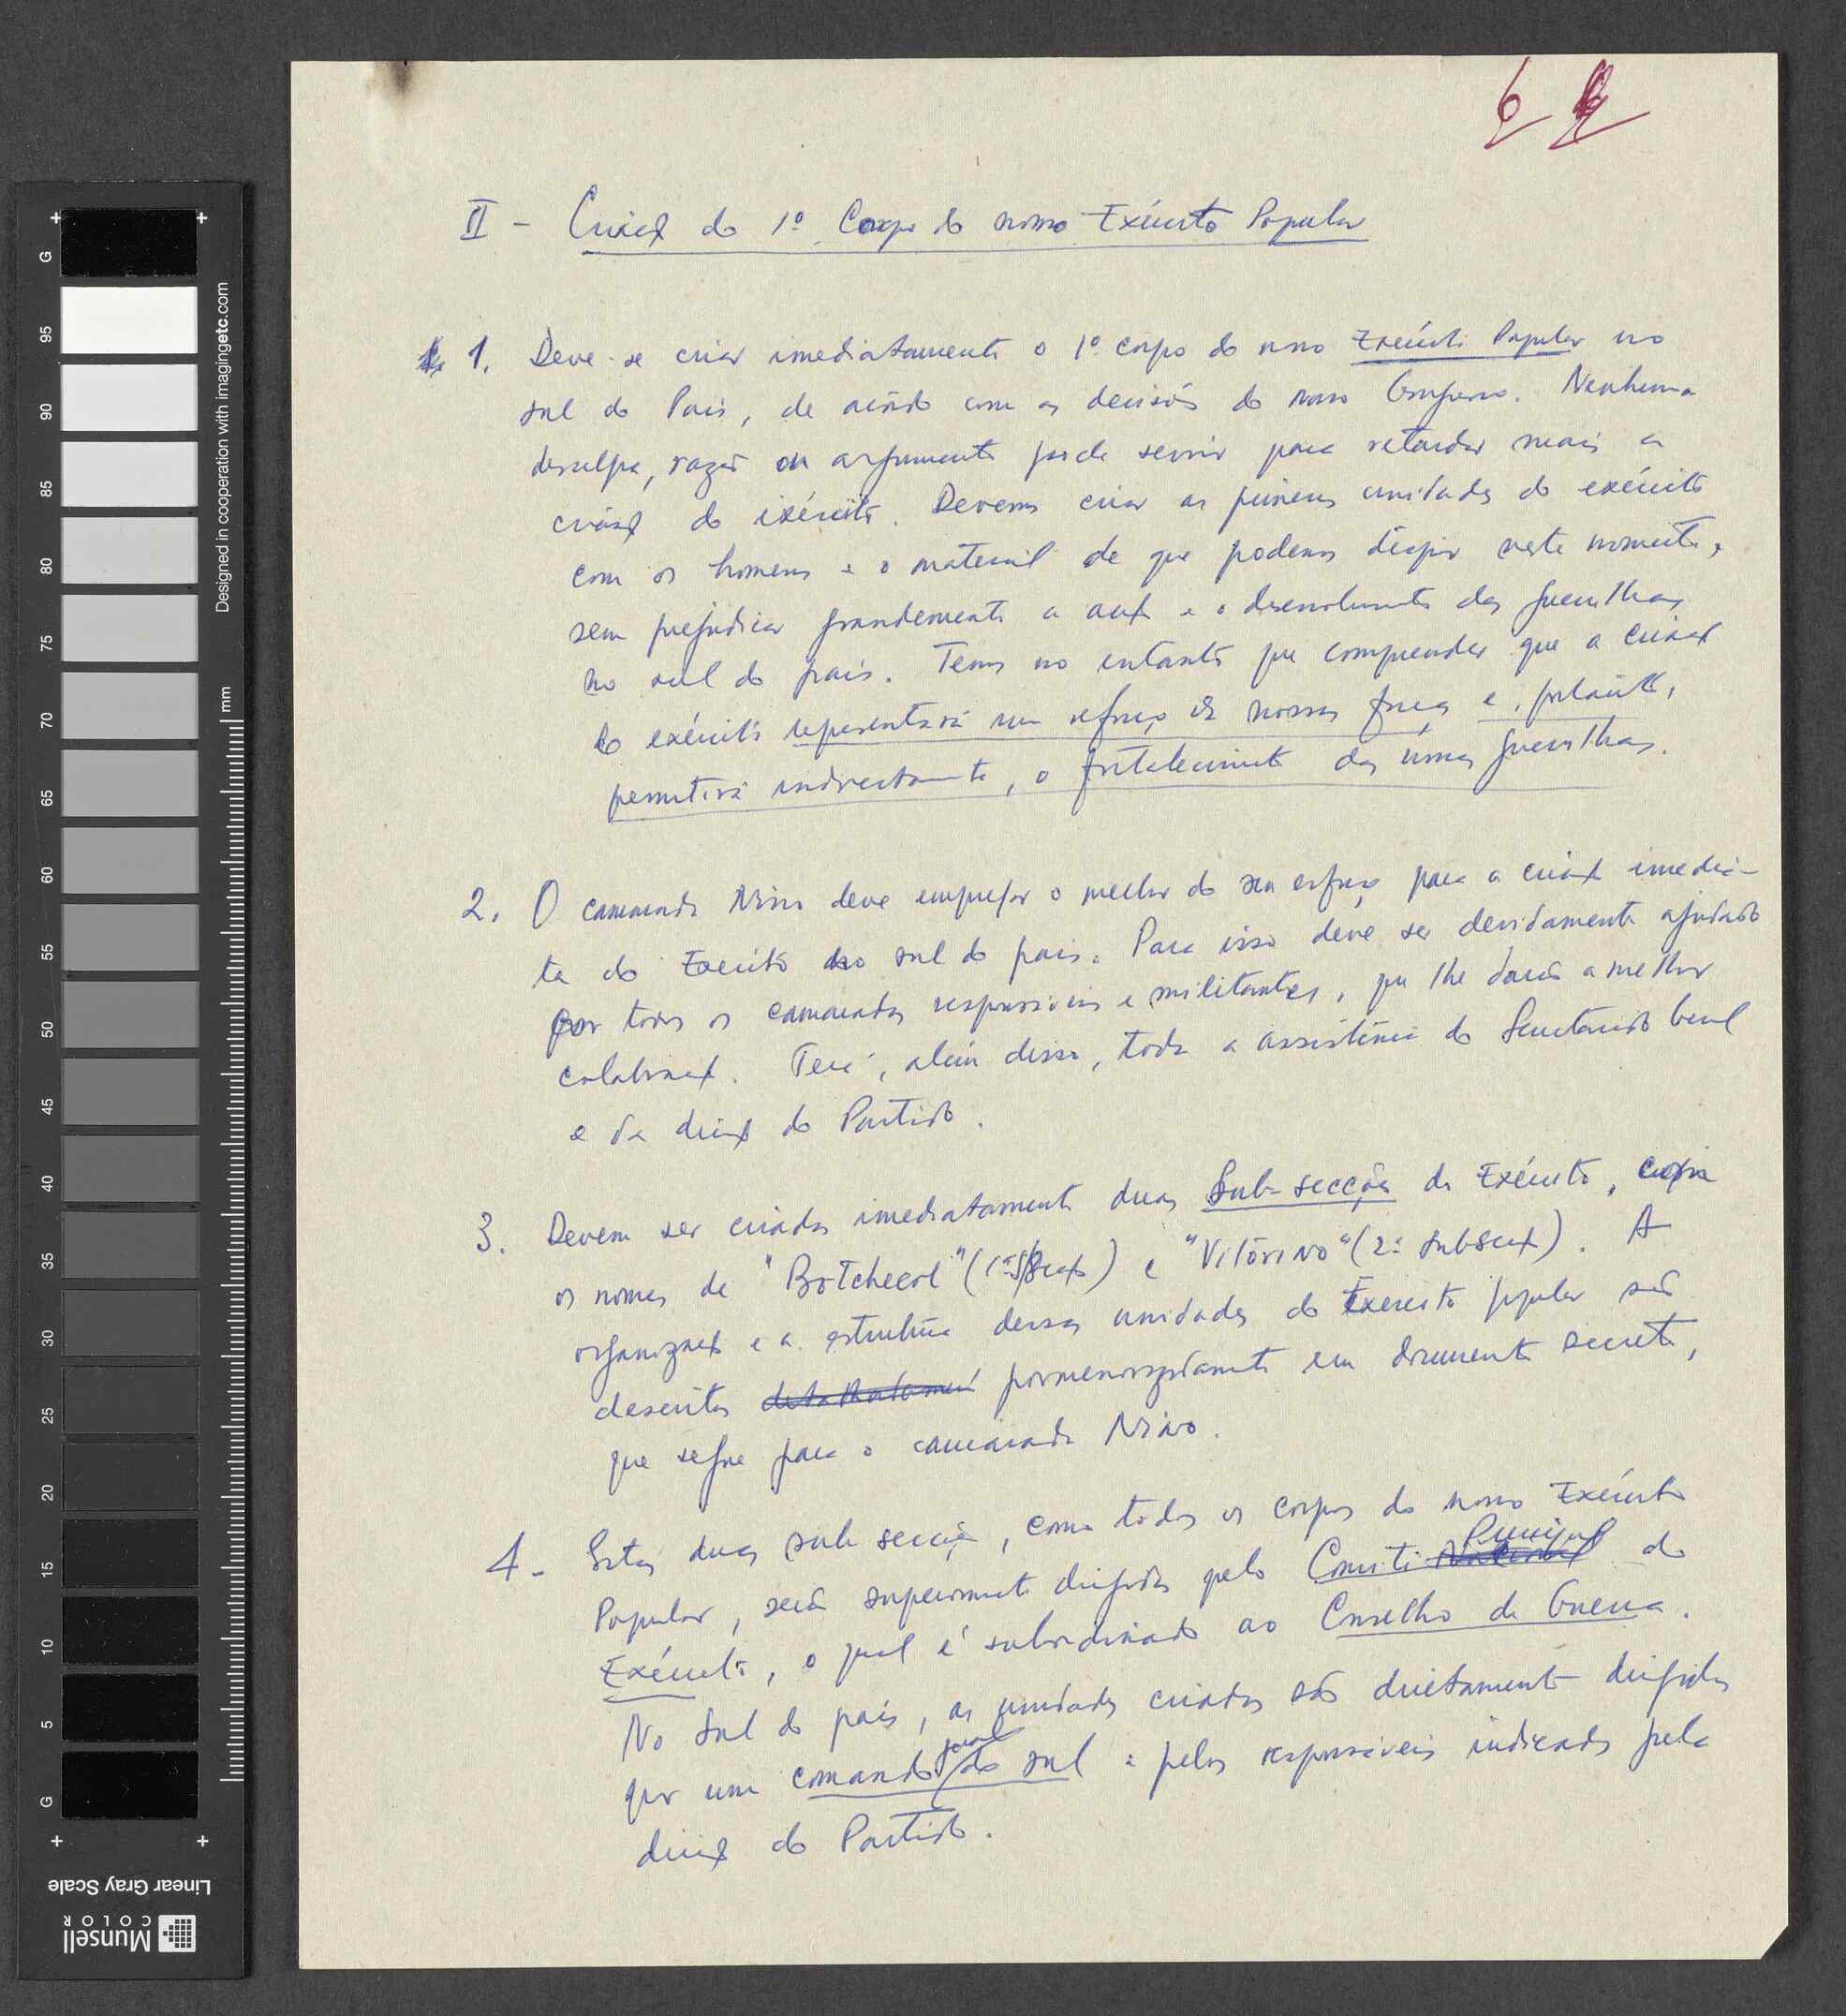 6
II - Criação do 1º Corpo do nosso Exército Popular
1. Deve-se criar imediatamente o 1º corpo do nosso Exército Popular no
sul do País, de acôrdo com as decisões do nosso Congresso. Nenhuma
desculpa, razão ou argumento pode servir para retardar mais a
criação do exército. Devemos criar as primeiras unidades do exército
com os homens e o material de que podemos dispor neste momento,
sem prejudicar grandemente a acção e o desenvolvimento das guerrilhas
no sul do país. Temos no entanto que compreender que a criação
do exército representará um reforço das nossas forças e, portanto,
permitirá indirectamente, o fortalecimento das nossas guerrilhas.
2. O camarada Nino deve empregar o melhor do seu esforço para a criação imedia-
ta do Exército no sul do país. Para isso deve ser devidamente ajudado
por todos os camaradas responsáveis e militantes, que lhe darão a melhor
colaboração. Terá, além disso, toda a assistência do Secretariado Geral
e da direcção do Partido.
3. Devem ser criadas imediatamente duas Sub-secções do Exército, com
os nomes de "Botchecol" (1ª S/Secção) e "Vitorino" (2ª Subsecção). A
organização e a estrutura dessas unidades do Exército popular são
descritas pormenorizadamente em documento secreto,
que segue para o camarada Nino.
4. Estas duas sub secções, como todos os corpos do nosso Exército
Popular, serão superiormente dirigidas pelo Comité Principal do
Exército, o qual é subordinado ao Conselho de Guerra.
No Sul do país, as unidades criadas são directamente dirigidas
por um comando geral do sul e pelos responsáveis indicados pela
direcção do Partido.
G
95
90
85
80
75
70
65
60
55
50
45
40
35
30
25
20
15
10
5
G
Designed in cooperation with imagingetc.com
mm
Linear Gray Scale
Munsell
COLOR